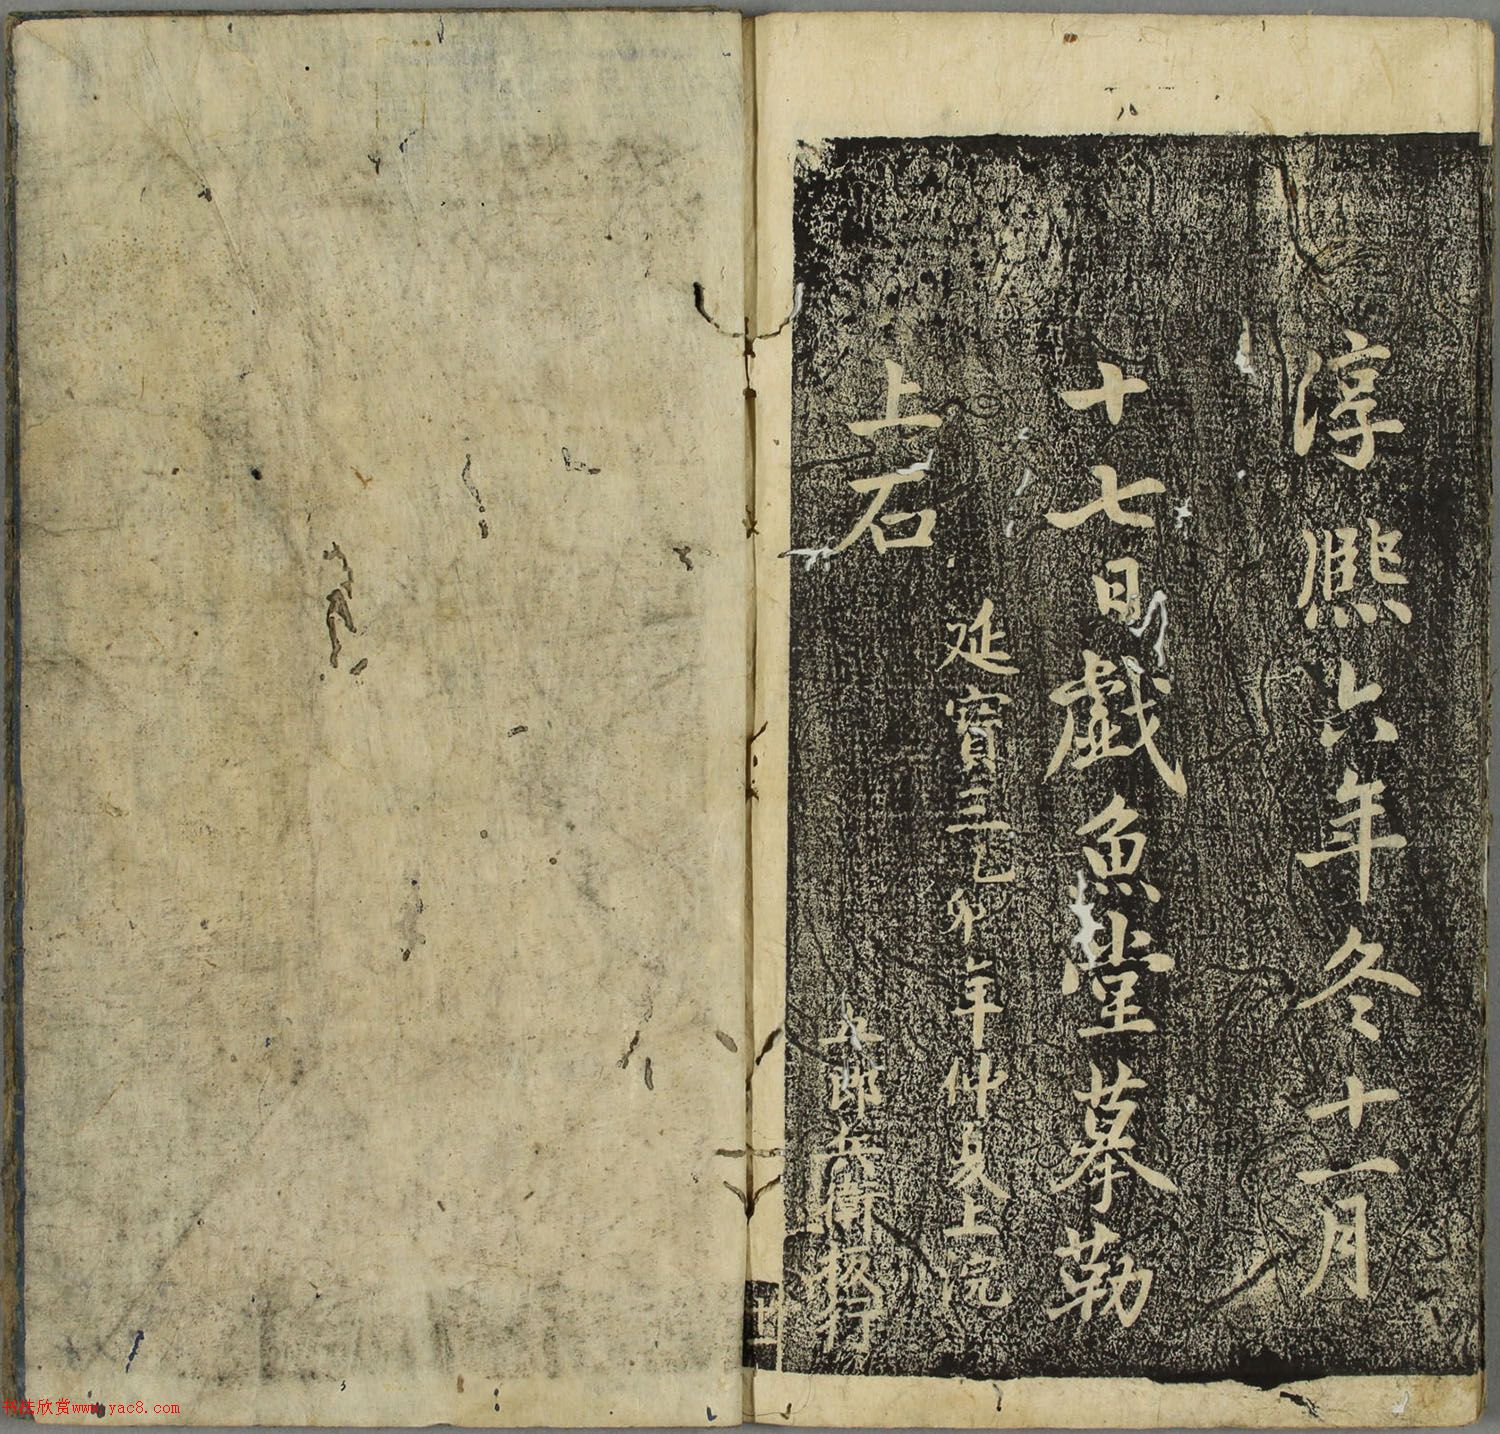 淳熙六年冬十一月
十七日戲魚堂摹勒
上石
延寶三乙卯年仲夏上浣
五郎兵衛板行
十一
书法欣赏www.yac8.com